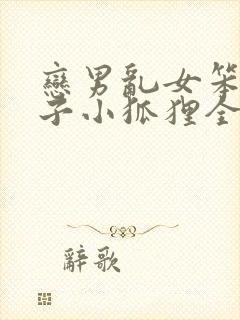 戀男亂女笨
子小狐狸全
辭歌